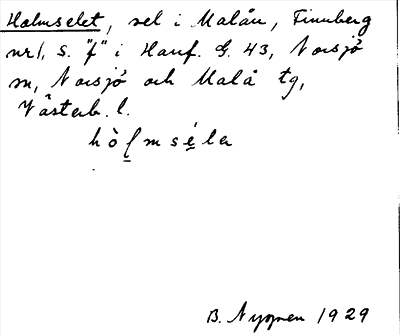 Holmselet, sel i Malån, Finnberg
nr 1, s. "f" i Hauf. G. 43, Norsjö
sn, Norsjö och Malå tg,
Västerb. l.
hòlmséla
B. Nygren 1929